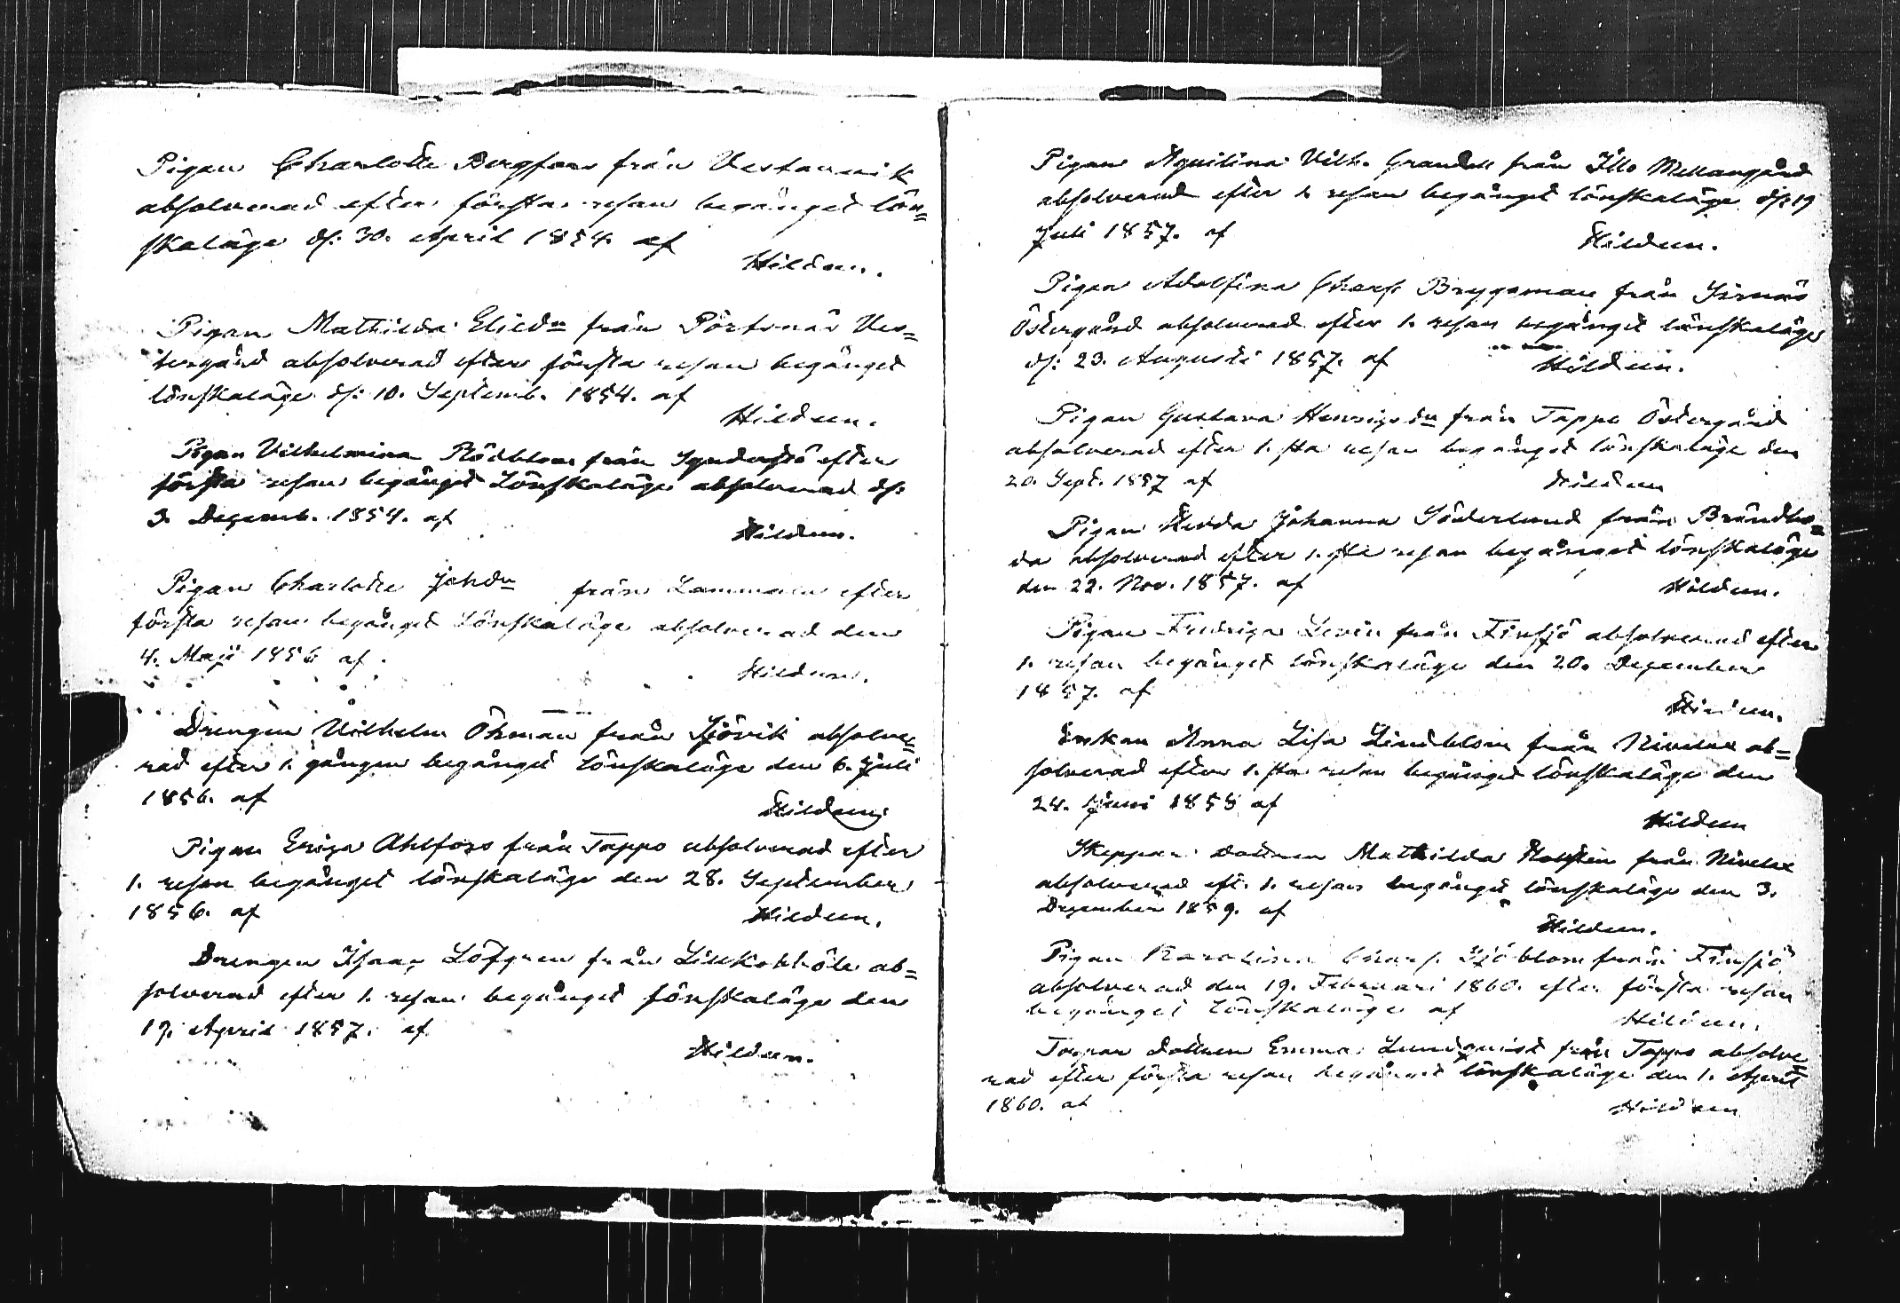 Pigan Charlotte Bergfors från Vestanvik
absolverad efter första resan begånget lön=
skaläge d: 30. April 1854. af
Hildeen.
Pigan Mathilda Elied:r från Pörtsnäs Ves=
tergård absolverad efter första resan begånget
lönskaläge d: 10. Septemb. 1854. af
Hildeen.
Pigan Vilhelmina Rödblom från efter
första resan begånget Lönskaläge absolverad d:
3. Decemb. 1854. af
Hildeen.
Pigan Charlotte Johd:r från Lammala efter
första resan begånget Lönskaläge absolverad den
4. Maji 1856 af
Hildeen.
Drengen Vilhelm Öhman från Sjövik absolve=
rad efter 1. gången begånget lönskaläge den 6. Juli
1856. af
Hildeen.
Pigan Erica Ahlfors från Tappo absolverad efter
1. resan begånget lönskaläge den 28. September
1856. af
Hildeen.
Drengen Isaac Löfgren från ab=
solverad efter 1. resan begånget lönskaläge den
19. April 1857. af
Hildeen.
Pigan Aqvilina Vilh. Grandell från Illo Mellangård
absolverad efter 1 resan begånget lönskaläge d: 19
Juli 1857. af
Hildeen.
Pigan Adolfina Charl. Bryggman från
Östergård absolverad efter 1. resan begånget lönskaläge
d: 23. Augusti 1857. af
Hildeen.
Pigan Gustava Henricsd:r från Tappo Östergård
absolverad efter 1.sta resan begånget lönskaläge den
20. Sept. 1857 af
Hildeen
Pigan Hedda Johanna Söderlund från Brändbo=
da absolverad efter 1.sta resan begånget lönskaläge
den 22. Nov. 1857. af
Hildeen.
Pigan Fredrica Levin från Finsjö absolverad efter
1. resan begånget lönskaläge den 20. December
1857. af
Hildeen.
Enkan Anna Lisa Lindblom från Nivelax ab=
solverad efter 1.sta resan begånget lönskaläge den
24. Juni 1858 af
Hildeen
Skeppar dottren Mathilda Holsten från Nivelax
absolverad eft. 1. resan begånget lönskaläge den 3.
December 1859. af
Hildeen.
Pigan Karolina Charl. Sjöblom från Finsjö
absolverad den 19. Februari 1860. efter första resan
begånget Lönskaläge af
Hildeen.
Torpar dottren Emma Lundqvist från Tappo absolve=
rad efter första resan begånget lönskaläge den 1. April
1860. af
Hildeen